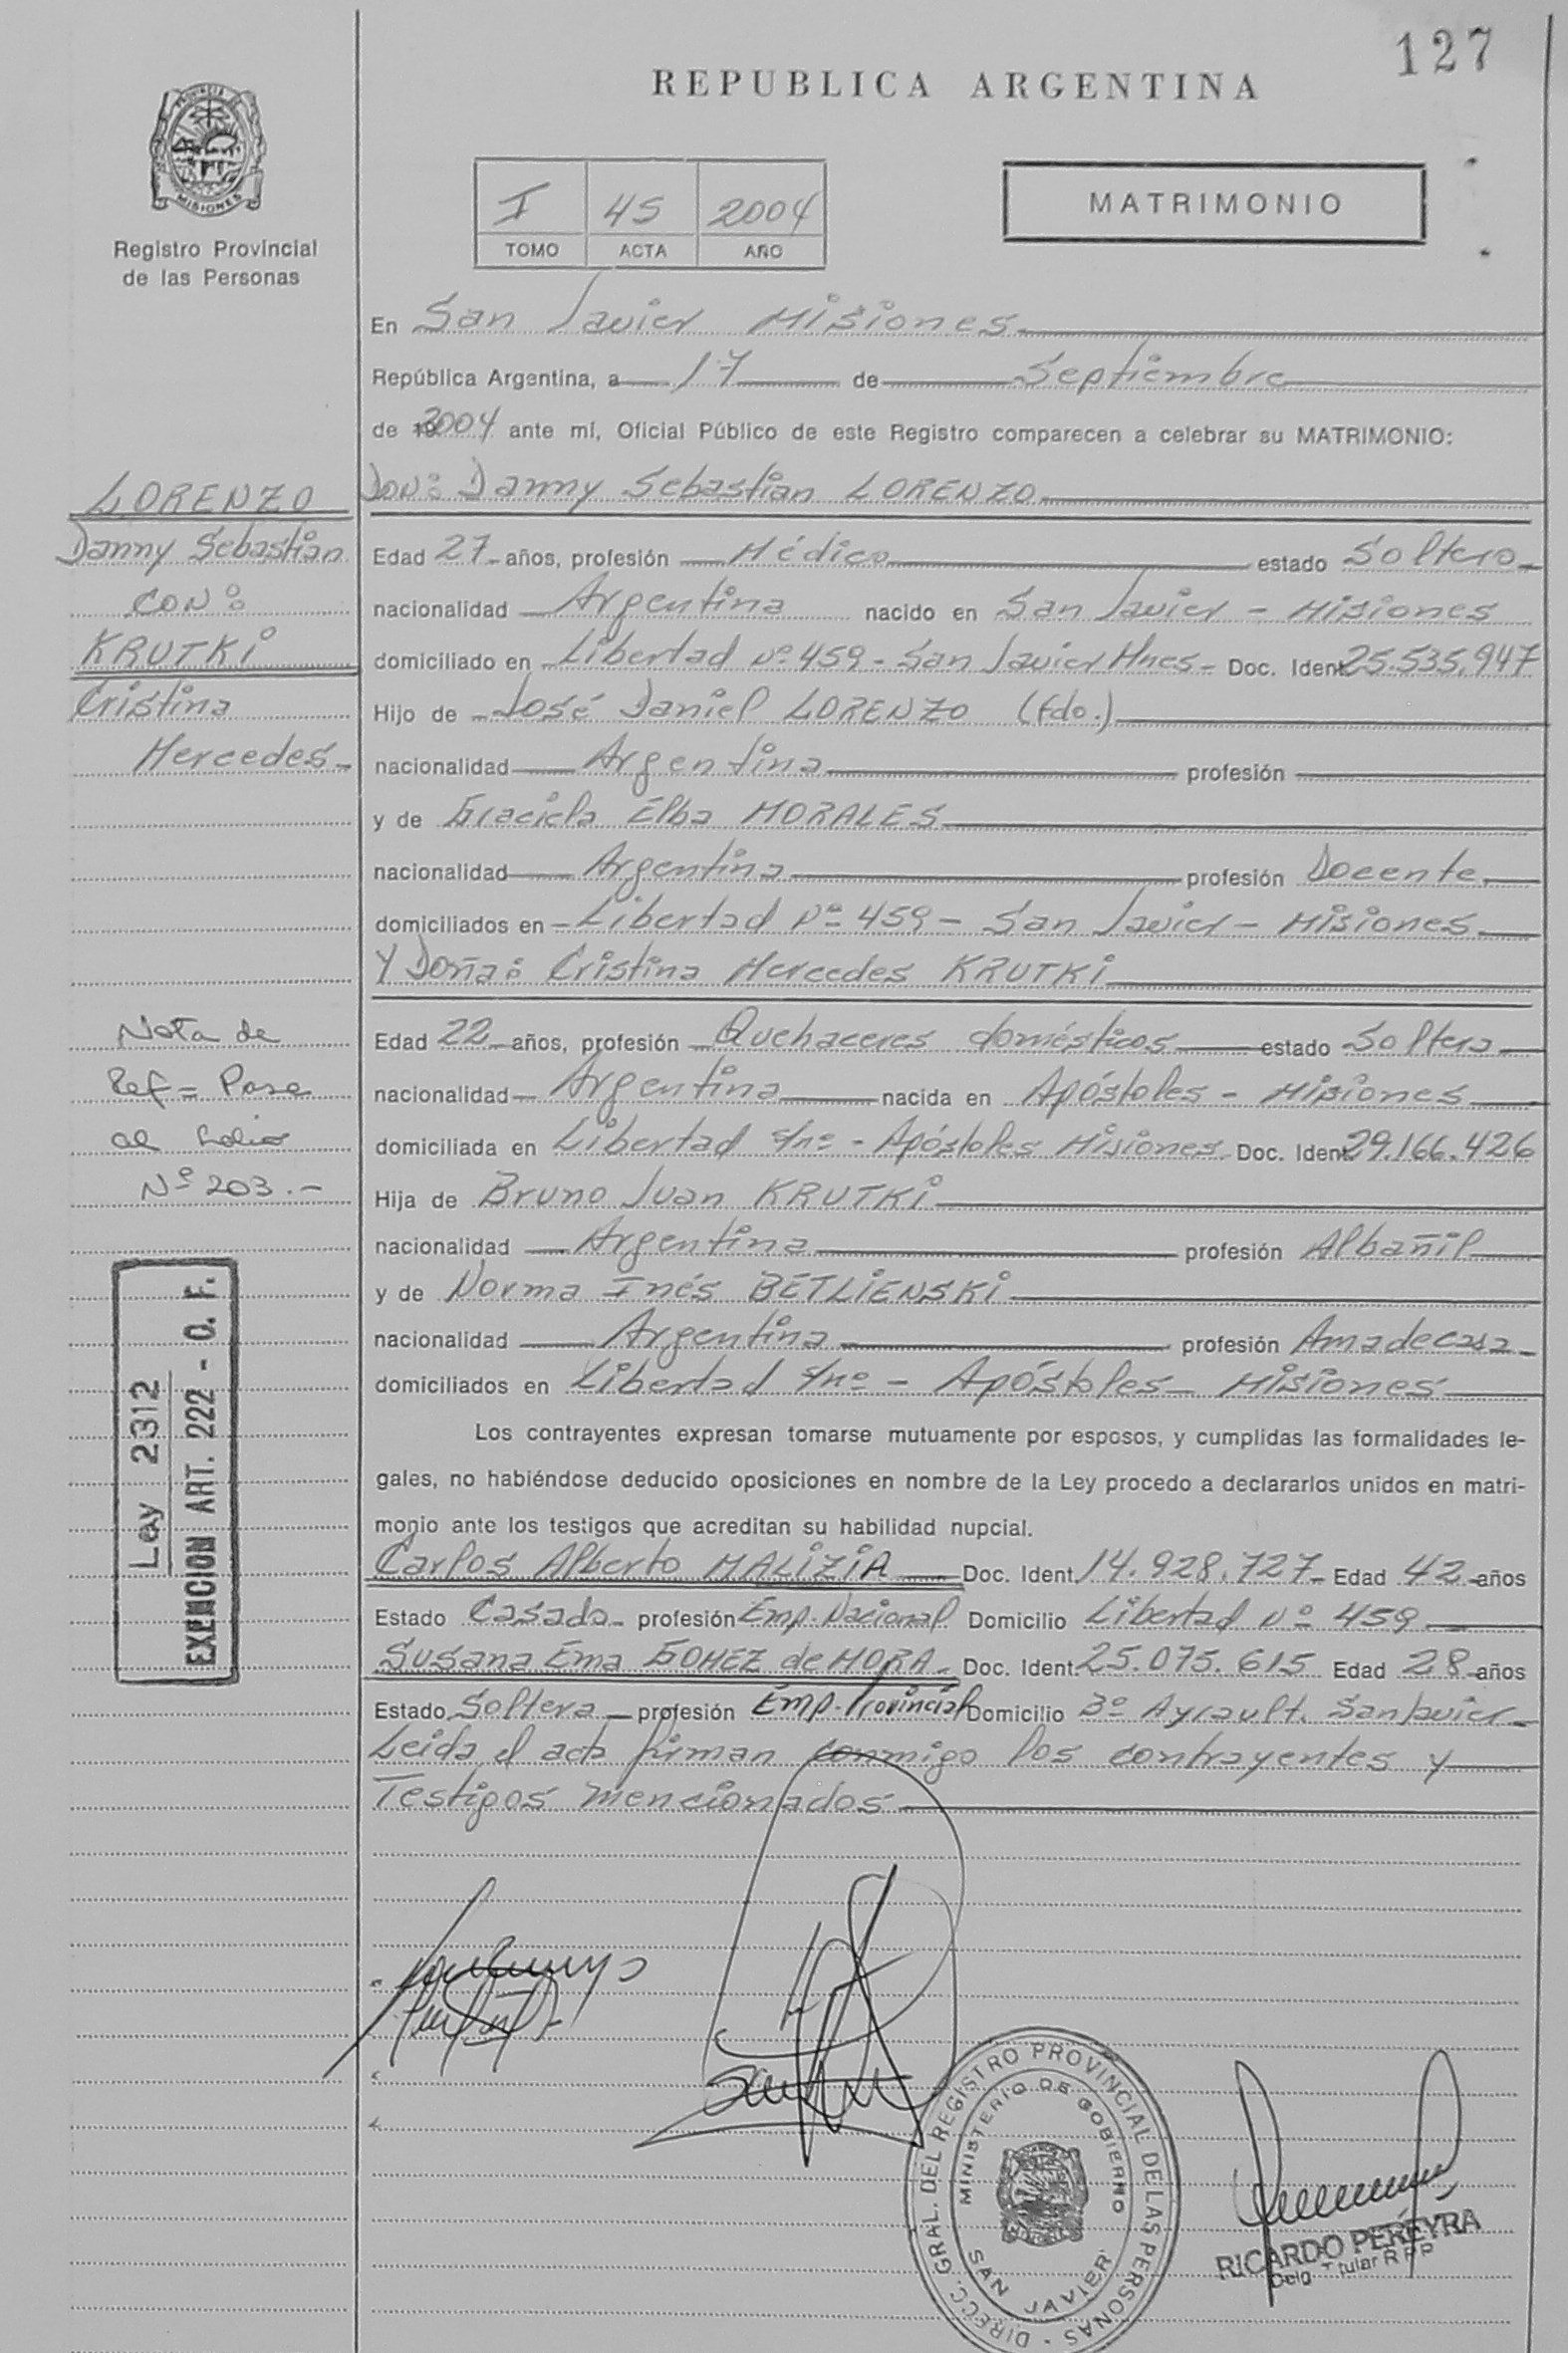 127
REPUBLICA ARGENTINA
PROVINCIA DE
MISIONES
Registro Provincial
de las Personas
I 45 2004
TOMO ACTA AÑO
MATRIMONIO
En San Javier Misiones
República Argentina, a 17 de Septiembre
de 2004 ante mí, Oficial Público de este Registro comparecen a celebrar su MATRIMONIO:
LORENZO
Danny Sebastian
CON:
KRUTKI
Cristina
Mercedes
Don: Danny Sebastian LORENZO
Edad 27 años, profesión Médico estado Soltero
nacionalidad Argentina nacido en San Javier - Misiones
domiciliado en Libertad Nº 459 - San Javier Mnes - Doc. Ident 25.535.947
Hijo de José Daniel LORENZO (fdo.)
nacionalidad Argentina profesión
y de Graciela Elba MORALES
nacionalidad Argentina profesión Docente
domiciliados en Libertad Nº 459 - San Javier - Misiones
Y Doña: Cristina Mercedes KRUTKI
Edad 22 años, profesión Quehaceres domésticos estado Soltera
nacionalidad Argentina nacida en Apóstoles - Misiones
domiciliada en Libertad s/nº - Apóstoles Misiones Doc. Ident 29.166.426
Hija de Bruno Juan KRUTKI
nacionalidad Argentina profesión Albañil
y de Norma Inés BETLIENSKI
nacionalidad Argentina profesión Amadecasa
domiciliados en Libertad s/nº - Apóstoles - Misiones
Nota de
Ref = Pase
al folio
Nº 203.-
Ley 2312
EXENCION ART. 222 - O. F.
Los contrayentes expresan tomarse mutuamente por esposos, y cumplidas las formalidades le-
gales, no habiéndose deducido oposiciones en nombre de la Ley procedo a declararlos unidos en matri-
monio ante los testigos que acreditan su habilidad nupcial.
Carlos Alberto MALIZIA Doc. Ident. 14.928.727 Edad 42 años
Estado Casado profesión Emp. Nacional Domicilio Libertad Nº 459
Susana Ema GOMEZ de MORA Doc. Ident. 25.075.615 Edad 28 años
Estado Soltera profesión Emp. Provincial Domicilio Bº Ayrault. San Javier
Leida el acta firman conmigo los contrayentes y
Testigos mencionados
DIRECC. GRAL. DEL REGISTRO PROVINCIAL DE LAS PERSONAS
MINISTERIO DE GOBIERNO
SAN JAVIER
RICARDO PEREYRA
Delg. Titular R P P